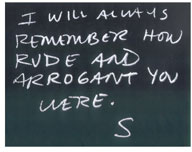 I WILL ALWAYS
REMEMBER HOW
RUDE AND
ARROGANT YOU
WERE.
S